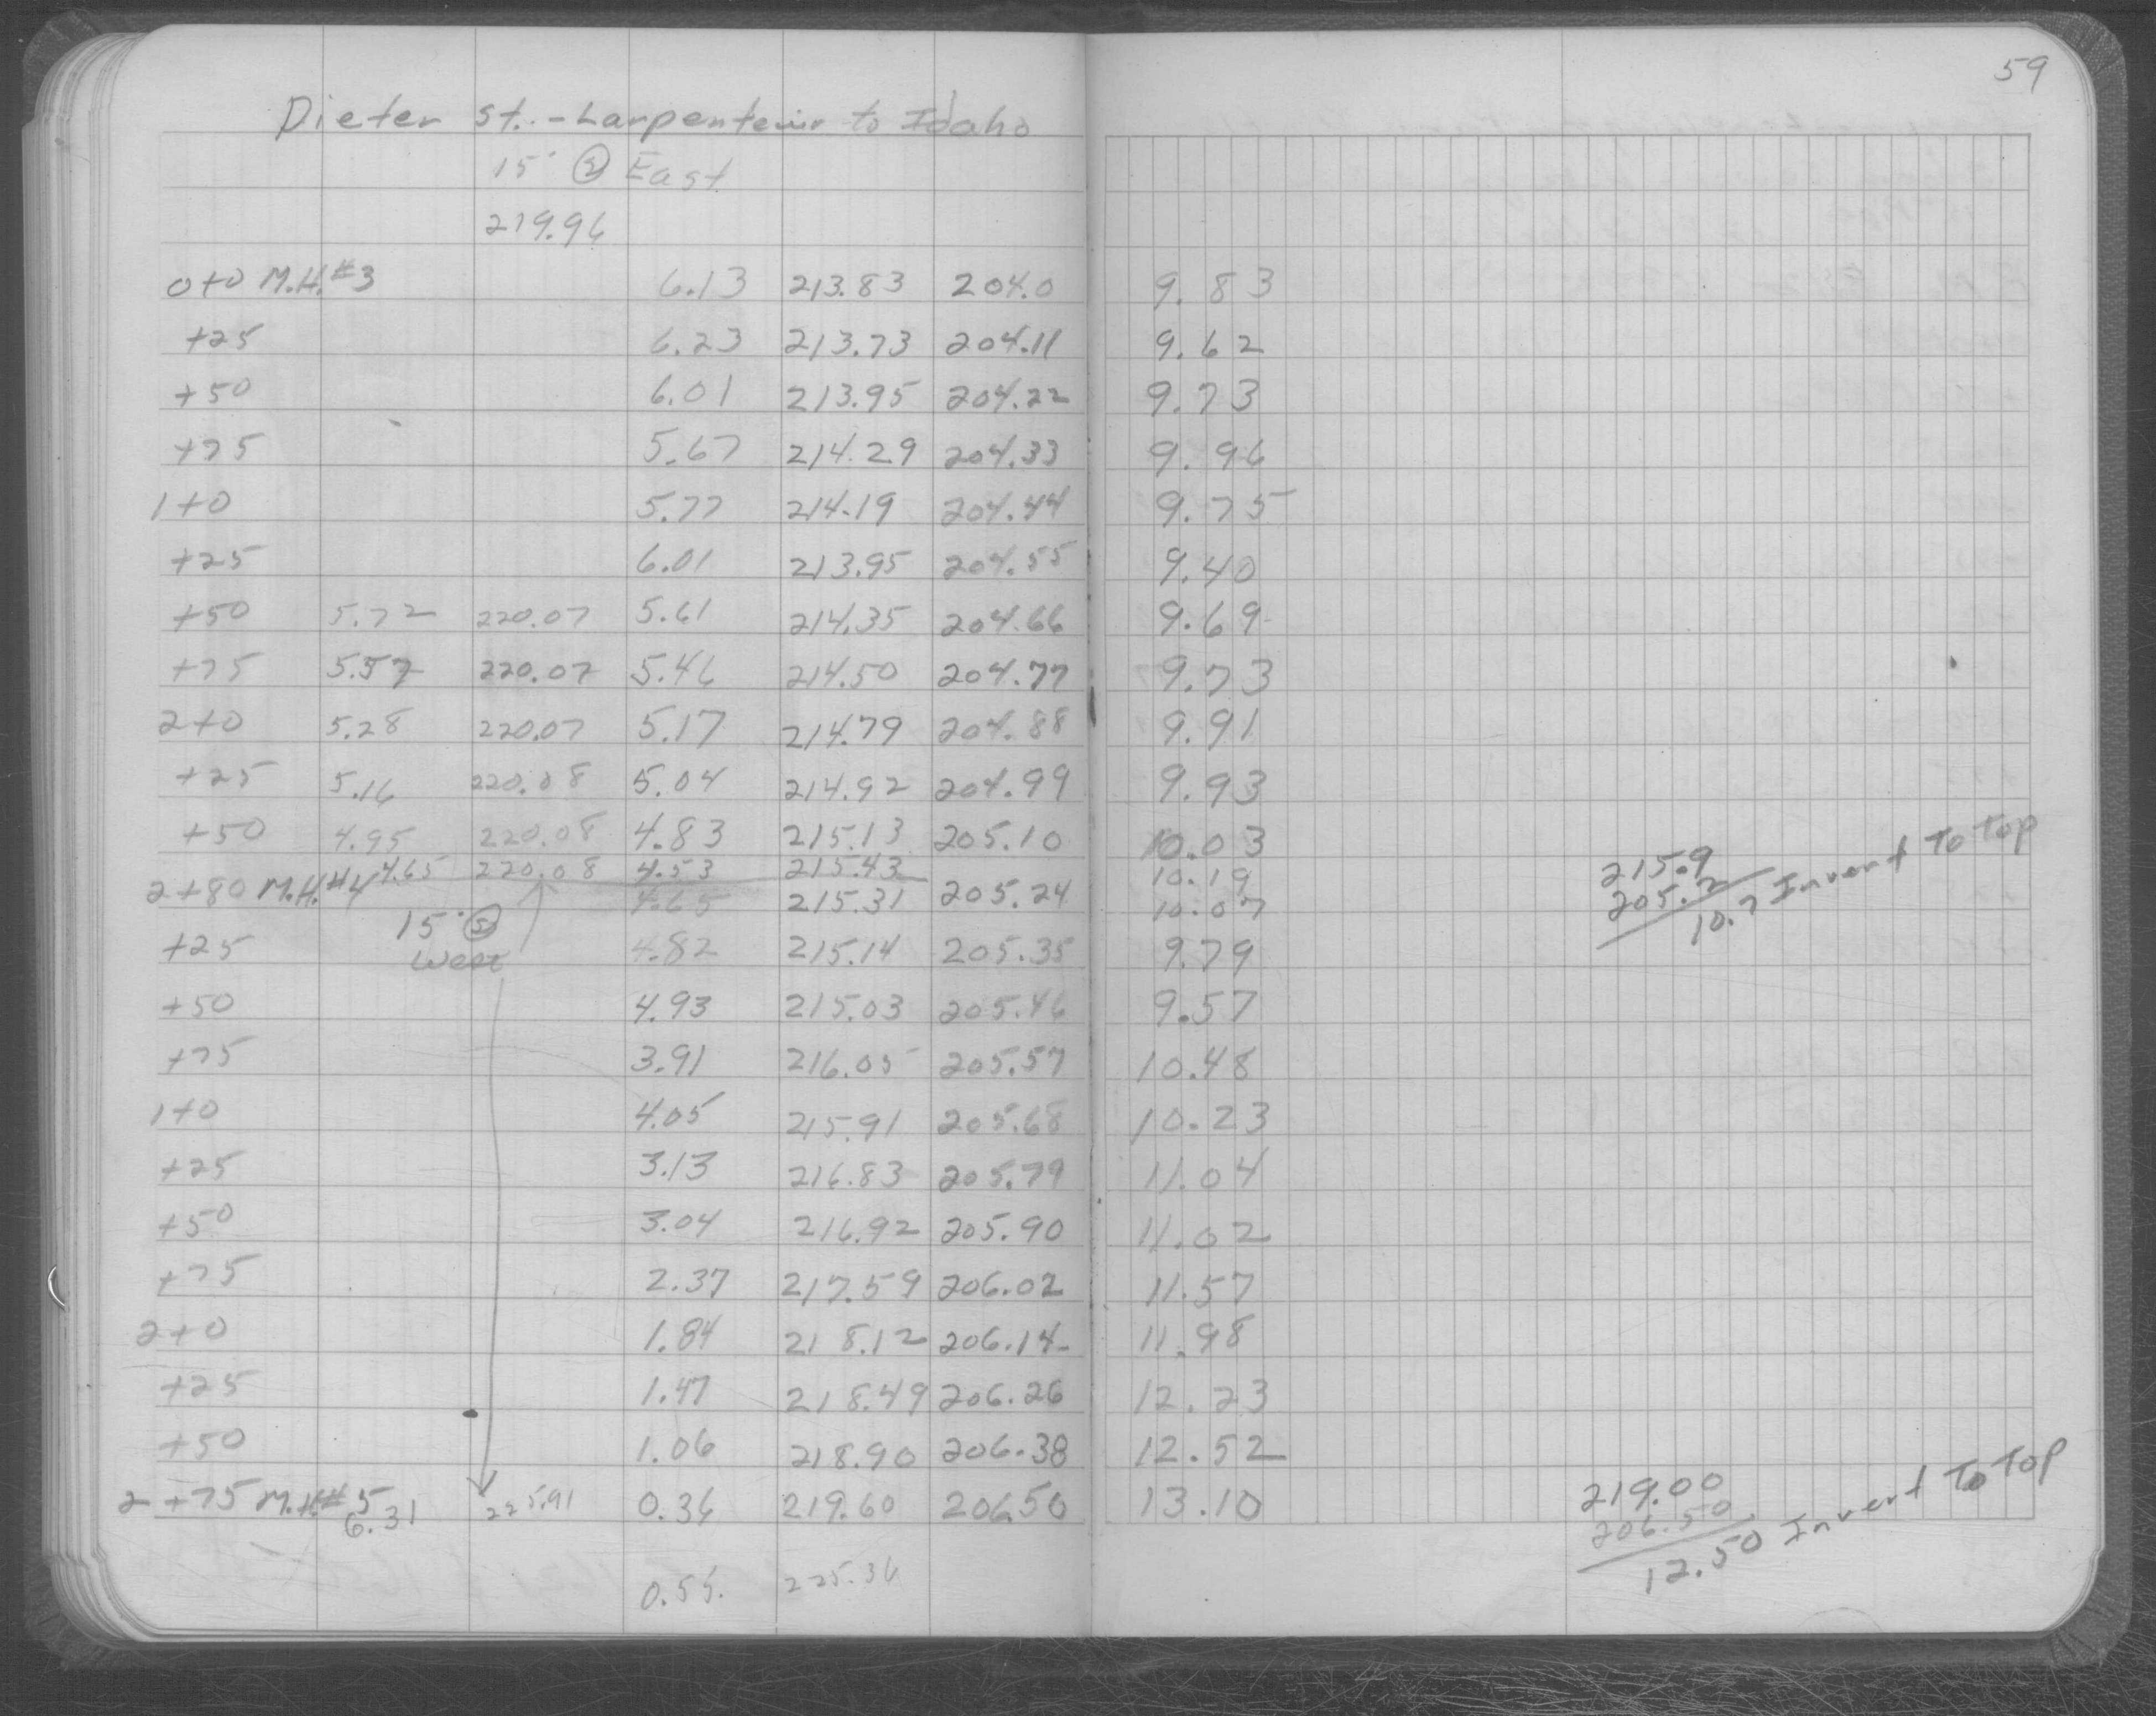 59
Dieter St. - Larpenteur to Idaho
15' Ⓢ East
219.96
0+0 M.H. #3 6.13 213.83 204.0 9.83
+25 6.23 213.73 204.11 9.62
+50 6.01 213.95 204.22 9.73
+75 5.67 214.29 204.33 9.96
1+0 5.77 214.19 204.44 9.75
+25 6.01 213.95 204.55 9.40
+50 5.72 220.07 5.61 214.35 204.66 9.69
+75 5.57 220.07 5.46 214.50 204.77 9.73
2+0 5.28 220.07 5.17 214.79 204.88 9.91
+25 5.16 220.08 5.04 214.92 204.99 9.93
+50 4.95 220.08 4.83 215.13 205.10 10.03
4.65 220.08 4.53 215.43 10.19
2+80 M.H. #4 4.65 215.31 205.24 10.07
215.9
205.2
10.7 Invert To Top
15' Ⓢ
West
+25 4.82 215.14 205.35 9.79
+50 4.93 215.03 205.46 9.57
+75 3.91 216.05 205.57 10.48
1+0 4.05 215.91 205.68 10.23
+25 3.13 216.83 205.79 11.04
+50 3.04 216.92 205.90 11.02
+75 2.37 217.59 206.02 11.57
2+0 1.84 218.12 206.14 11.98
+25 1.47 218.49 206.26 12.23
+50 1.06 218.90 206.38 12.52
2+75 M.H. #5 6.31 225.91 0.36 219.60 206.50 13.10
219.00
206.50
12.50 Invert To Top
0.55 225.36